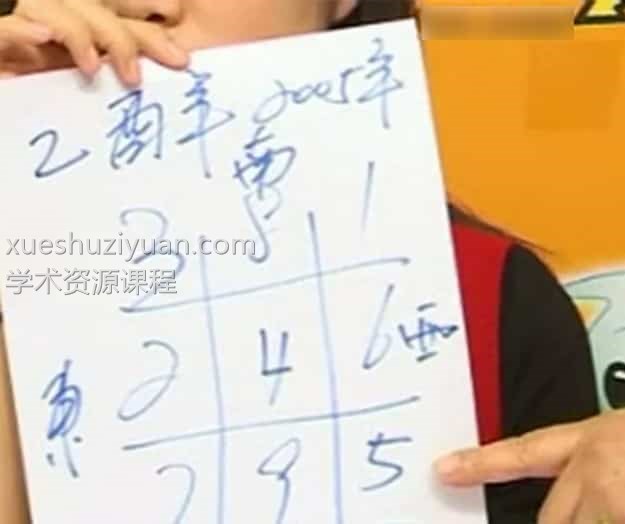 乙酉年 2005年
南
3 8 1
xueshuziyuan.com
学术资源课程
东 2 4 6 西
7 9 5